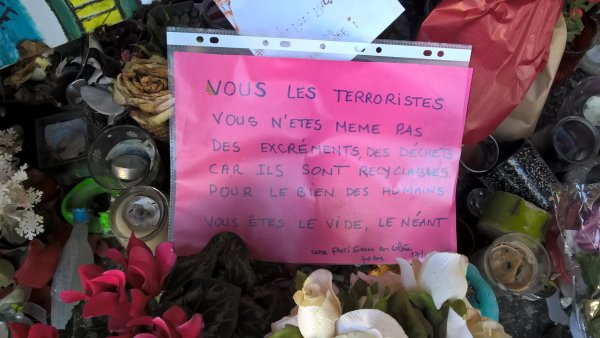 VOUS LES TERRORISTES
VOUS N'ETES MEME PAS
DES EXCRÉMENTS, DES DÉCHETS
CAR ILS SONT RECYCLABLES
POUR LE BIEN DES HUMAINS
VOUS ÊTES LE VIDE, LE NÉANT
une parisienne en colère
70 ans